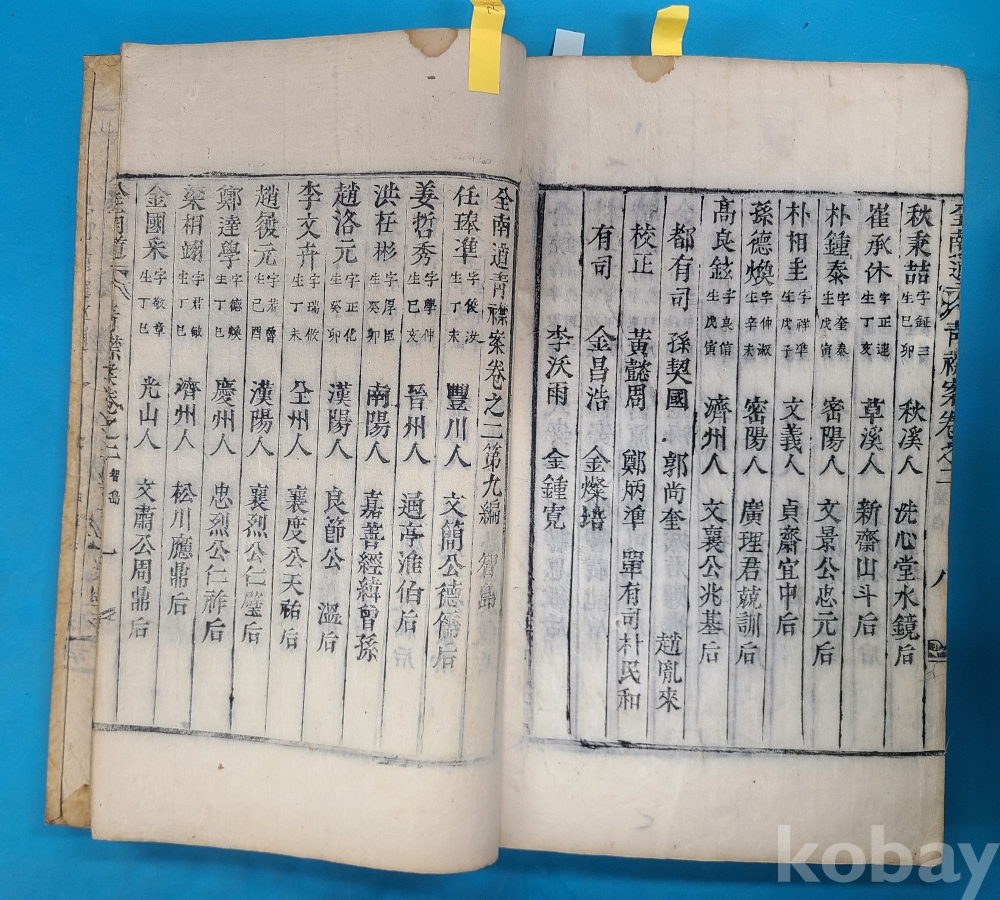 秋秉喆 字鉦三 生己卯 秋溪人 洗心堂水鏡后
崔承休 字正連 生丁亥 草溪人 新齋山斗后
朴鍾泰 字奎泰 生戊寅 密陽人 文景公忠元后
朴相圭 字祥準 生戊子 文義人 貞齋宜中后
孫德煥 字仲淑 生辛未 密陽人 廣理君兢訓后
高良鉉 字良信 生戊寅 濟州人 文襄公兆基后
都有司 孫契國 郭尚奎 趙胤來
校正 黃懿周 鄭炳準 單有司朴民和
有司 金昌浩 金燦培
李沃雨 金鍾寬
全南道靑襟案卷之二第九編 智島
任琫準 字俊汝 生丁未 豐川人 文簡公德儒后
姜哲秀 字學仲 生己亥 晉州人 通亭淮伯后
洪在彬 字厚臣 生癸卯 南陽人 嘉善經緯曾孫
趙洛元 字正化 生癸卯 漢陽人 良節公 溫后
李文卉 字瑞攸 生丁未 全州人 襄度公天祐后
趙復元 字若曾 生己酉 漢陽人 襄烈公仁璧后
鄭達學 字德煥 生丁巳 慶州人 忠烈公仁祚后
梁相翊 字君敏 生丁巳 濟州人 松川應鼎后
金國采 字敬章 生丁巳 光山人 文肅公周鼎后
全南道 靑襟案卷之二 智島 一
全南道 靑襟案卷之二 八
kobay